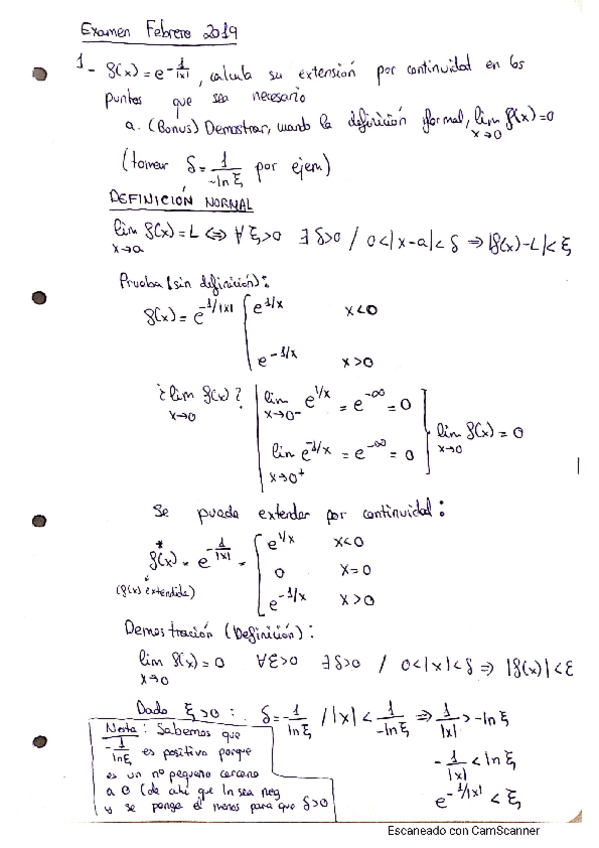 Examen Febrero 2019
1- f(x) = e^{-1/|x|}, calcula su extensión por continuidad en los
puntos que sea necesario
a. (Bonus) Demostrar, usando la definición formal, lim_{x→0} f(x)=0
(tomar δ = 1/(-ln ξ) por ejem)
DEFINICIÓN NORMAL
lim_{x→a} f(x)=L ⇔ ∀ ξ>0 ∃ δ>0 / 0<|x-a|<δ ⇒ |f(x)-L|<ξ
Prueba (sin definición):
f(x) = e^{-1/|x|} { e^{1/x} x<0
e^{-1/x} x>0
¿lim_{x→0} f(x)? | lim_{x→0-} e^{1/x} = e^{-∞} = 0
lim_{x→0+} e^{-1/x} = e^{-∞} = 0 } lim_{x→0} f(x) = 0
Se puede extender por continuidad:
f*(x) = e^{-1/|x|} = { e^{1/x} x<0
0 x=0
(f(x) extendida) e^{-1/x} x>0
Demostración (Definición):
lim_{x→0} f(x) = 0 ∀ε>0 ∃δ>0 / 0<|x|<δ ⇒ |f(x)|<ε
Dado ξ>0: δ = -1/ln ξ / |x| < 1/(-ln ξ) ⇒ 1/|x| > -ln ξ
-1/|x| < ln ξ
e^{-1/|x|} < ξ
Nota: Sabemos que
-1/ln ξ es positivo porque
es un nº pequeño cercano
a 0 (de ahí que ln sea neg
y se ponga el menos para que δ>0
Escaneado con CamScanner